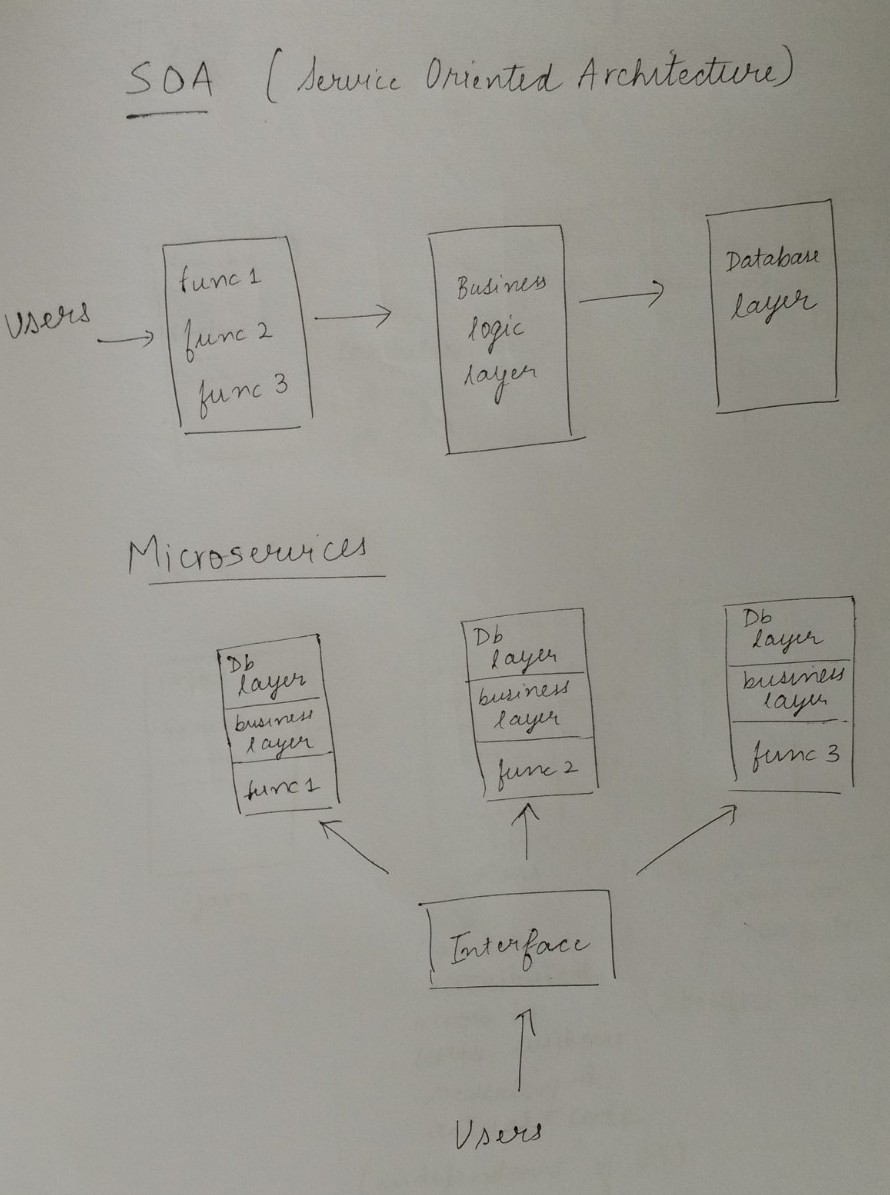 SOA (Service Oriented Architecture)
Users
func 1
func 2
func 3
Business
logic
layer
Database
layer
Microservices
Db
layer
business
layer
func 1
Db
layer
business
layer
func 2
Db
layer
business
layer
func 3
Interface
Users